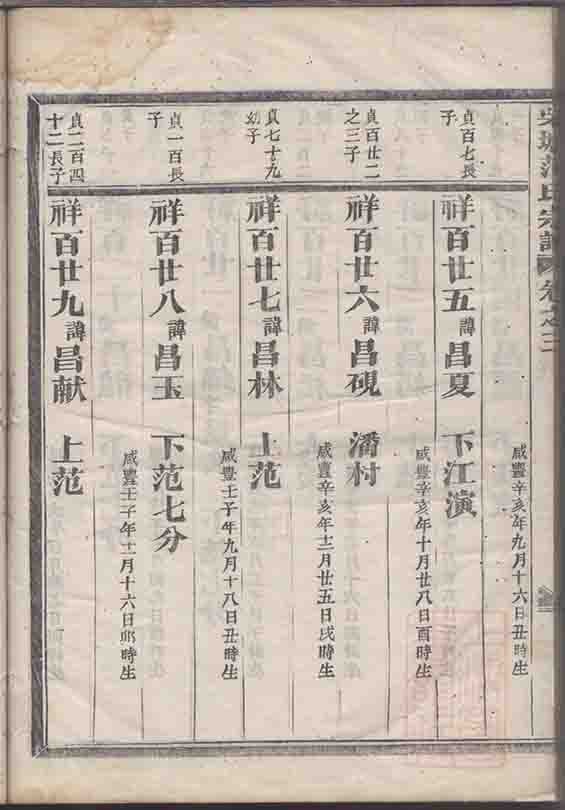 范氏宗譜 卷之
咸豐辛亥年九月十六日丑時生
貞百七長
子
祥百廿五 諱昌夏 下江演
咸豐辛亥年十月廿八日酉時生
貞百廿二
之三子
祥百廿六 諱昌硯 潘村
咸豐辛亥年十二月廿五日戌時生
貞七十九
幼子
祥百廿七 諱昌林 上范
咸豐壬子年九月十八日丑時生
貞一百長
子
祥百廿八 諱昌玉 下范七分
咸豐壬子年十一月十六日卯時生
貞二百四
十二長子
祥百廿九 諱昌献 上范